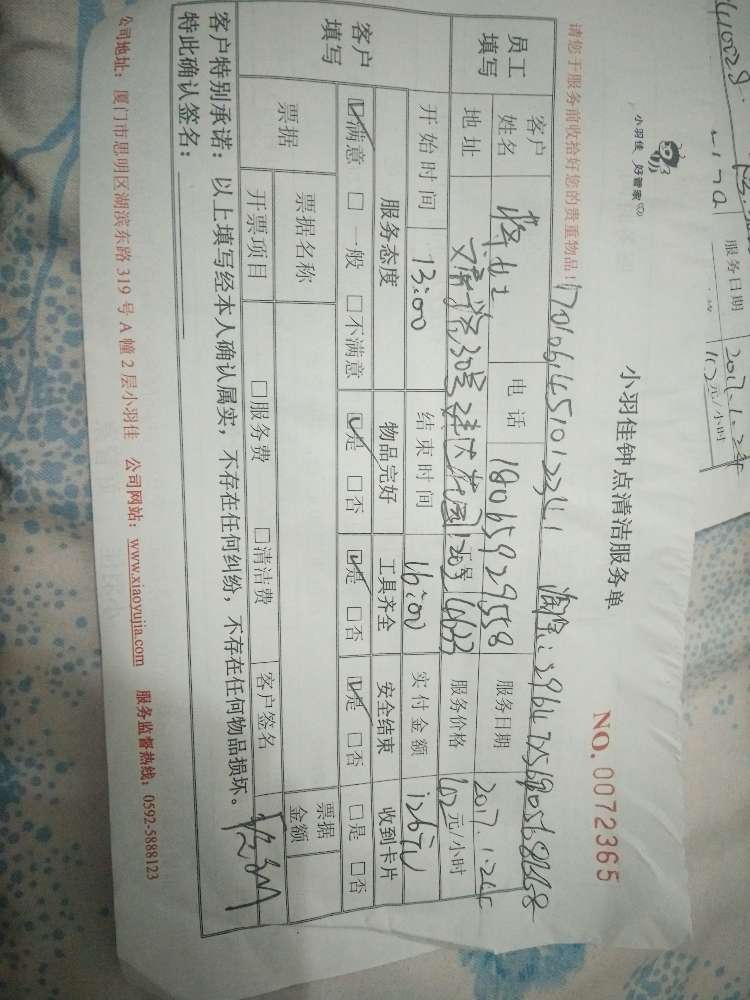 小羽佳 好管家
小羽佳钟点清洁服务单
NO. 0072365
请您于服务前收拾好您的贵重物品!
员工填写 客户姓名 电话 18065929558 服务日期 2017.1.24
地址 30号 服务价格 元/小时
客户填写 开始时间 13:00 结束时间 16:00 实付金额 126元
服务态度 物品完好 工具齐全 安全结束 收到卡片
☑满意 □一般 □不满意 ☑是 □否 ☑是 □否 ☑是 □否 □是 □否
票据 票据名称 票据金额
开票项目 □服务费 □清洁费 客户签名
客户特别承诺：以上填写经本人确认属实，不存在任何纠纷，不存在任何物品损坏。
特此确认签名：
公司地址：厦门市思明区湖滨东路 319 号 A 幢 2 层小羽佳 公司网站：www.xiaoyujia.com 服务监督热线：0592-5888123
服务日期
元/小时